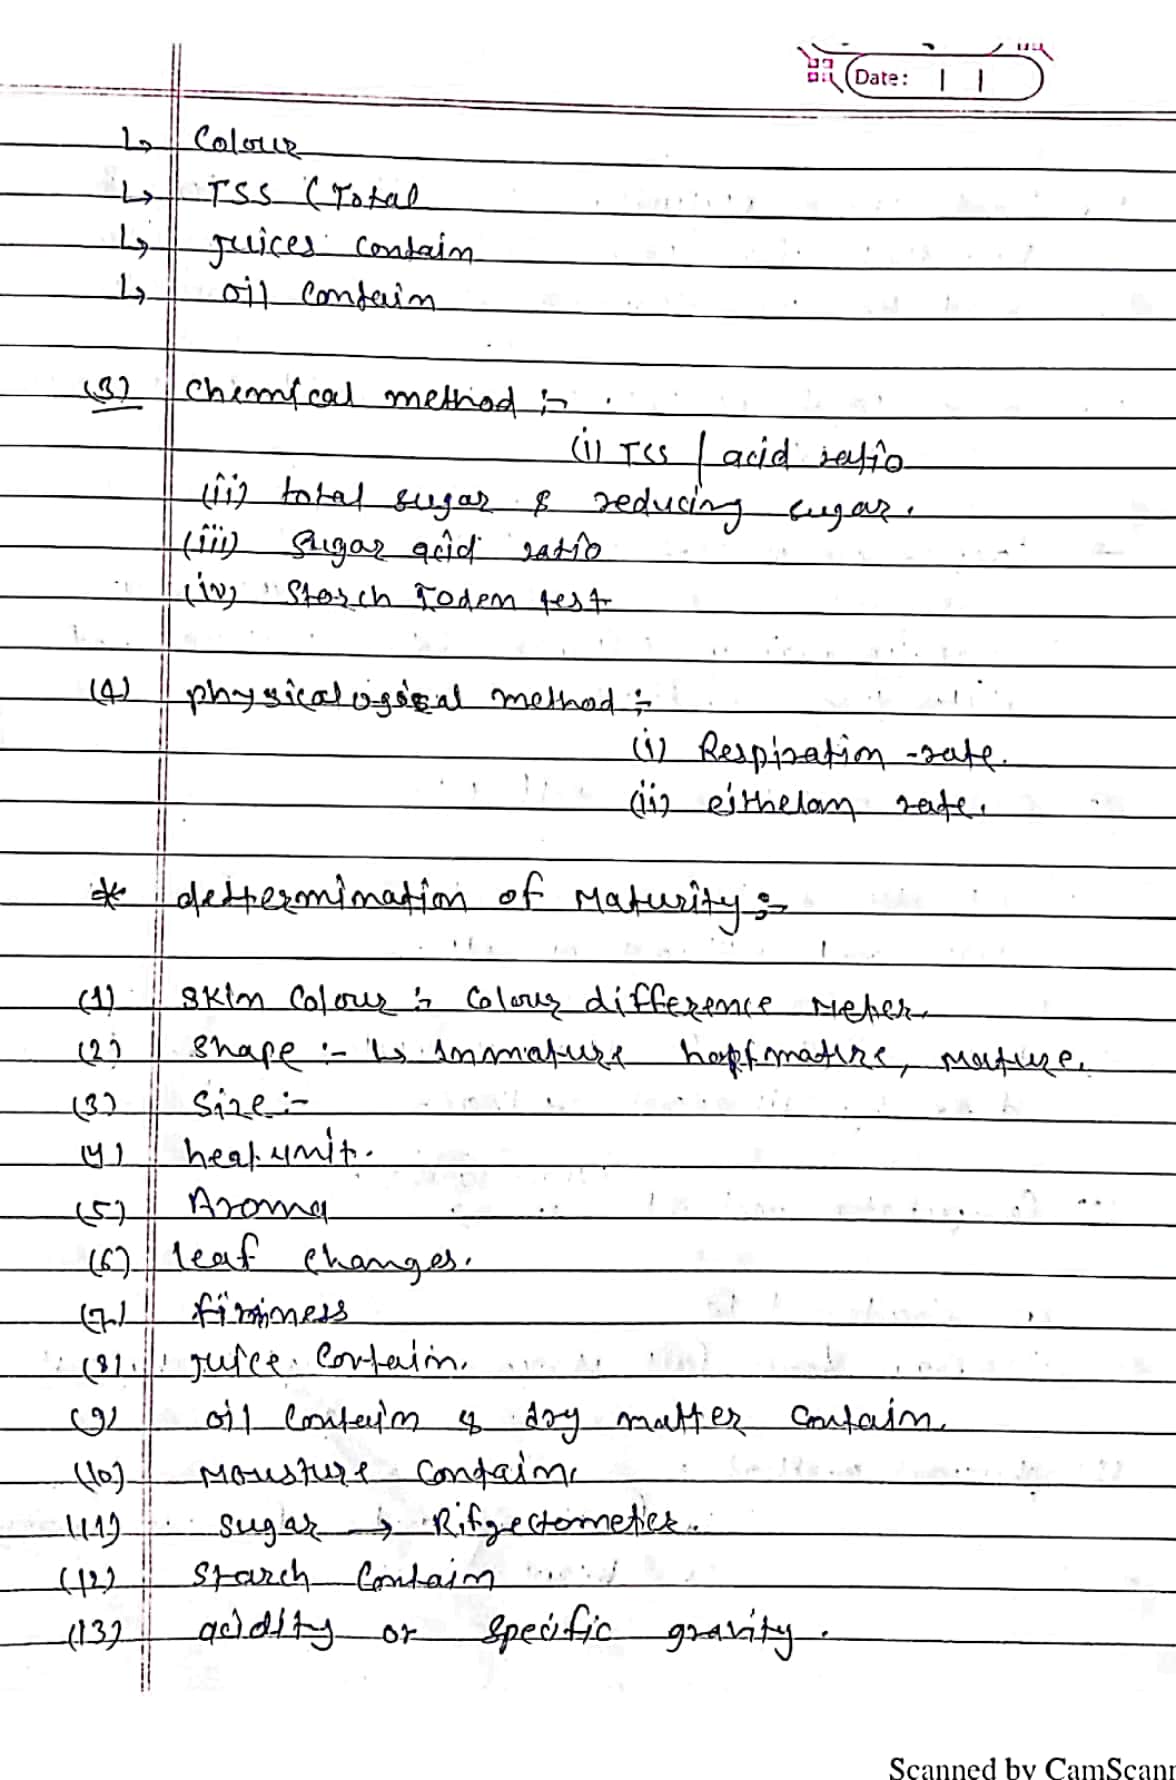 Date:
↳ Colour
↳ TSS (Total
↳ juices contain
↳ oil contain
(3) Chemical method :-
(i) TSS / acid ratio
(ii) total sugar & reducing sugar.
(iii) Sugar acid ratio
(iv) Starch Ioden test
(4) physicalogical method :-
(i) Respiration -rate.
(ii) eithelam rate.
* dettermination of Maturity :-
(1) Skin Colour :- Colour difference Meter.
(2) Shape :- ↳ Immature hapfmature, Mature.
(3) Size :-
(4) heat unit.
(5) Aroma
(6) leaf changes.
(7) firmness
(8) juice contain.
(9) oil contain & dry matter contain.
(10) Mousture contain.
(11) Sugar → Rifrectometer.
(12) Starch Contain
(13) acidity or specific gravity.
Scanned by CamScann